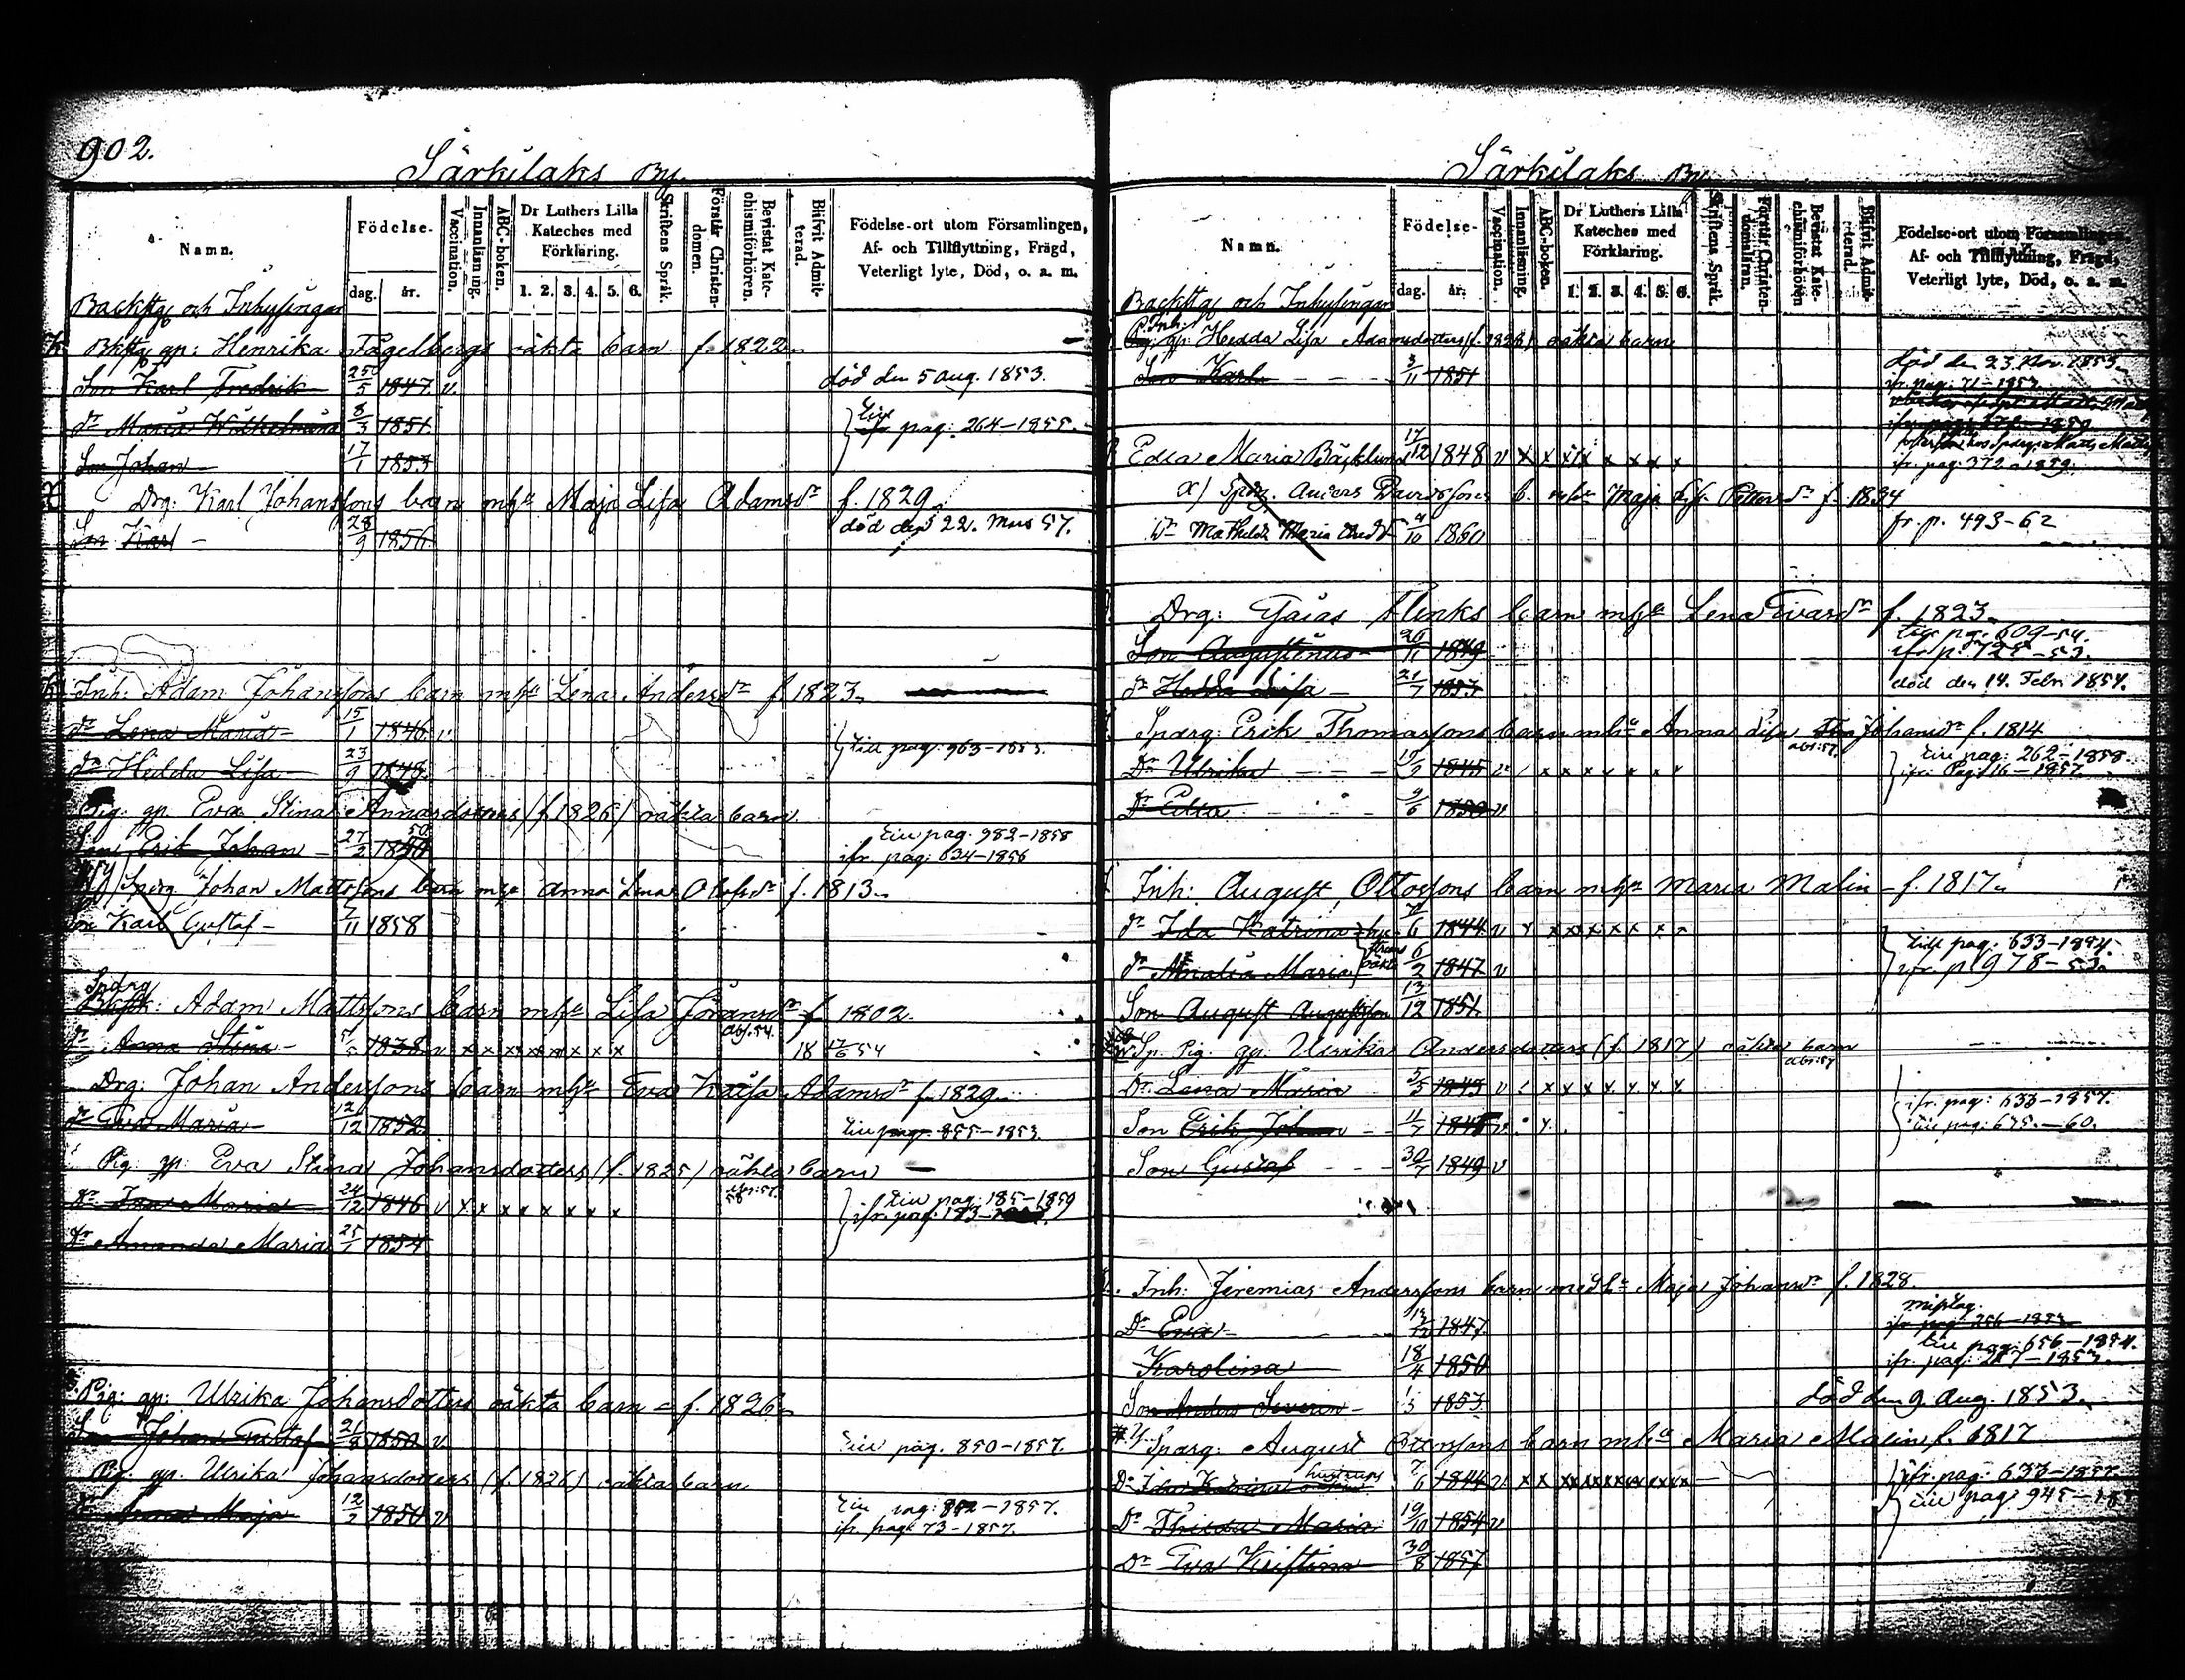 902.
Särkilaks By.
Namn.
Födelse-
dag.
år.
Vaccination.
Innanläsning.
ABC-boken.
Dr Luthers Lilla Kateches med Förklaring.
1. 2. 3. 4. 5. 6.
Skriftens Språk.
Förstår Christen-domen.
Bevistat Kate-chismiförhören.
Blifvit Admit-terad.
Födelse-ort utom Församlingen, Af- och Tillflyttning, Frägd, Veterligt lyte, Död, o. a. m.
Backstg och Inhysingar
Bkstg gp: Henrika Fagelbergs oäkta barn f. 1822
Son Karl Fredrik 25/5 1847. v. död den 5 aug. 1853.
dr Maria Wilhelmina 8/3 1851. till pag: 264-1855.
Son Johan 17/1 1853
Drg: Karl Johanssons barn mhu Maja Lisa Adamsdr f. 1829
Son Karl 28/9 1856. död den 22. Mars 57.
Inh: Adam Johanssons barn mhu Lena Andersdr f. 1823
dr Lena Maria 15/1 1846 v. till pag: 963-1853.
dr Hedda Lisa 23/9 1848
Pig: gp. Eva Stina Annasdotters (f 1826) oäkta barn.
Son Erik Johan 27/2 1850 till pag. 982-1858
ifr pag: 634-1856
Sparg Johan Mattssons barn mhu Anna Lena Olofsdr f. 1813.
Son Karl Gustaf 7/11 1858
Sparg
Adam Mattssons barn mhu Lisa Göransdr f 1802.
dr Anna Stina 1838 v x x x x x x x x abs. 54. 18 17/6 54
Drg: Johan Anderssons barn mhu Eva Kaisa Adamsdr f. 1829
dr Eva Maria 12/12 1852 till pag. 855-1853.
Pig: gp: Eva Stina Johansdotters (f. 1825) oäkta barn
24/12 1846 v x x x x x x x x till pag: 185-1859
dr Amanda Maria 25/1 1854
Pig: gp: Ulrika Johansdotters oäkta barn f. 1826
Son Johan Gustaf 21/8 1850 v till pag. 850-1857.
Pig. gp. Ulrika Johansdotters (f. 1826) oäkta barn
Anna Maja 12/2 1850 v till pag: 892-1857.
ifr pag 73-1857.
Särkilaks By.
Namn.
Födelse-
dag.
år.
Vaccination.
Innanläsning.
ABC-boken.
Dr Luthers Lilla Kateches med Förklaring.
1. 2. 3. 4. 5. 6.
Skriftens Språk.
Förstår Christen-domsläran.
Bevistat Kate-chismiförhören
Blifvit Admit-terad.
Födelse-ort utom Församlingen, Af- och Tillflyttning, Frägd, Veterligt lyte, Död, o. a. m.
Backstg och Inhysingar
Inh.
Pig: gp: Hedda Lisa Adamsdotters (f. 1826) oäkta barn
Son Karl 3/11 1851 död den 23. Nov. 1853.
ifr. pag: 71-1857.
Edla Maria Bäcklund 17/12 1848 v x x x x x x x x x
ifr pag: 372-1859.
x) Sparg. Anders Davidssons b. mhu Maja Lisa Pettersdr f. 1834
dr Mathilda Maria 4/10 1860 fr. p. 493-62
Drg: Gaias Flinks barn mhu Lena Evardr f. 1823
Son Augustinus 26/11 1849 till pag. 609-54.
ifr p. 725-53.
dr Hedda Lisa 21/7 1853 död den 14. Febr 1854.
Sparg: Erik Thomassons barn mhu Anna Lisa Johansdr f. 1814
Dr Ulrika 1845 v / x x x x x x x abs: 57. till pag: 262-1858.
ifr: Pag: 16-1857.
Dr Edla 9/6 1850 v
Inh: August Ottossons barn mhu Maria Malin f. 1817
dr Ida Katrina hustruns oäkta 7/6 1844 v till pag. 633-1854.
dr Amalia Maria 6/2 1847 v ifr. p 978-53.
Son August Augustsson 13/12 1851
Sp. Pig. gp. Ulrika Andersdotters (f. 1817) oäkta barn
Dr Lena Maria 5/5 1845 v / x x x x x x x abs: 57
ifr. pag: 633-1857.
Son Erik Johan 11/7 v till pag: 675.-60.
Son Gustaf 30/7 1849 v
Inh: Jeremias Anderssons barn med hu Maja Johansdr f. 1828.
Dr Eva 1847 misstag.
ifr pag 256-1853
till pag: 656-1854.
Karolina 18/4 1850 ifr. pag: 217-1853.
Son Anders Severin 1853 död den 9. Aug. 1853.
Sparg: August Ottossons barn mhu Maria Malin f. 1817
Dr Ida Katrina hustruns oäkta 7/6 1844 v ifr. pag: 633-1857.
Dr Thilda Maria 19/10 1854 v
Dr Eva Kristina 30/8 1857